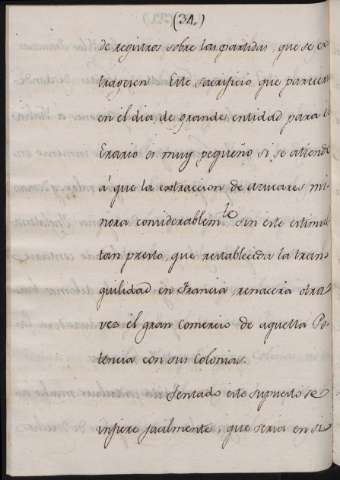 (31.)
de registros sobre las partidas, que se ex
tragesen. Este sacrificio que parecer
en el dia de grande entidad para el
Erario es muy pequeño si se atiende
á que la extraccion de azucares mi
nora considerablemte. sin este estimu
tan presto, que restablecida la tran
quilidad en Francia, renacerá otra
vez el gran Comercio de aquella Po
tencia con sus Colonias.
Sentado este supuesto se
infiere facilmente, que seria en si